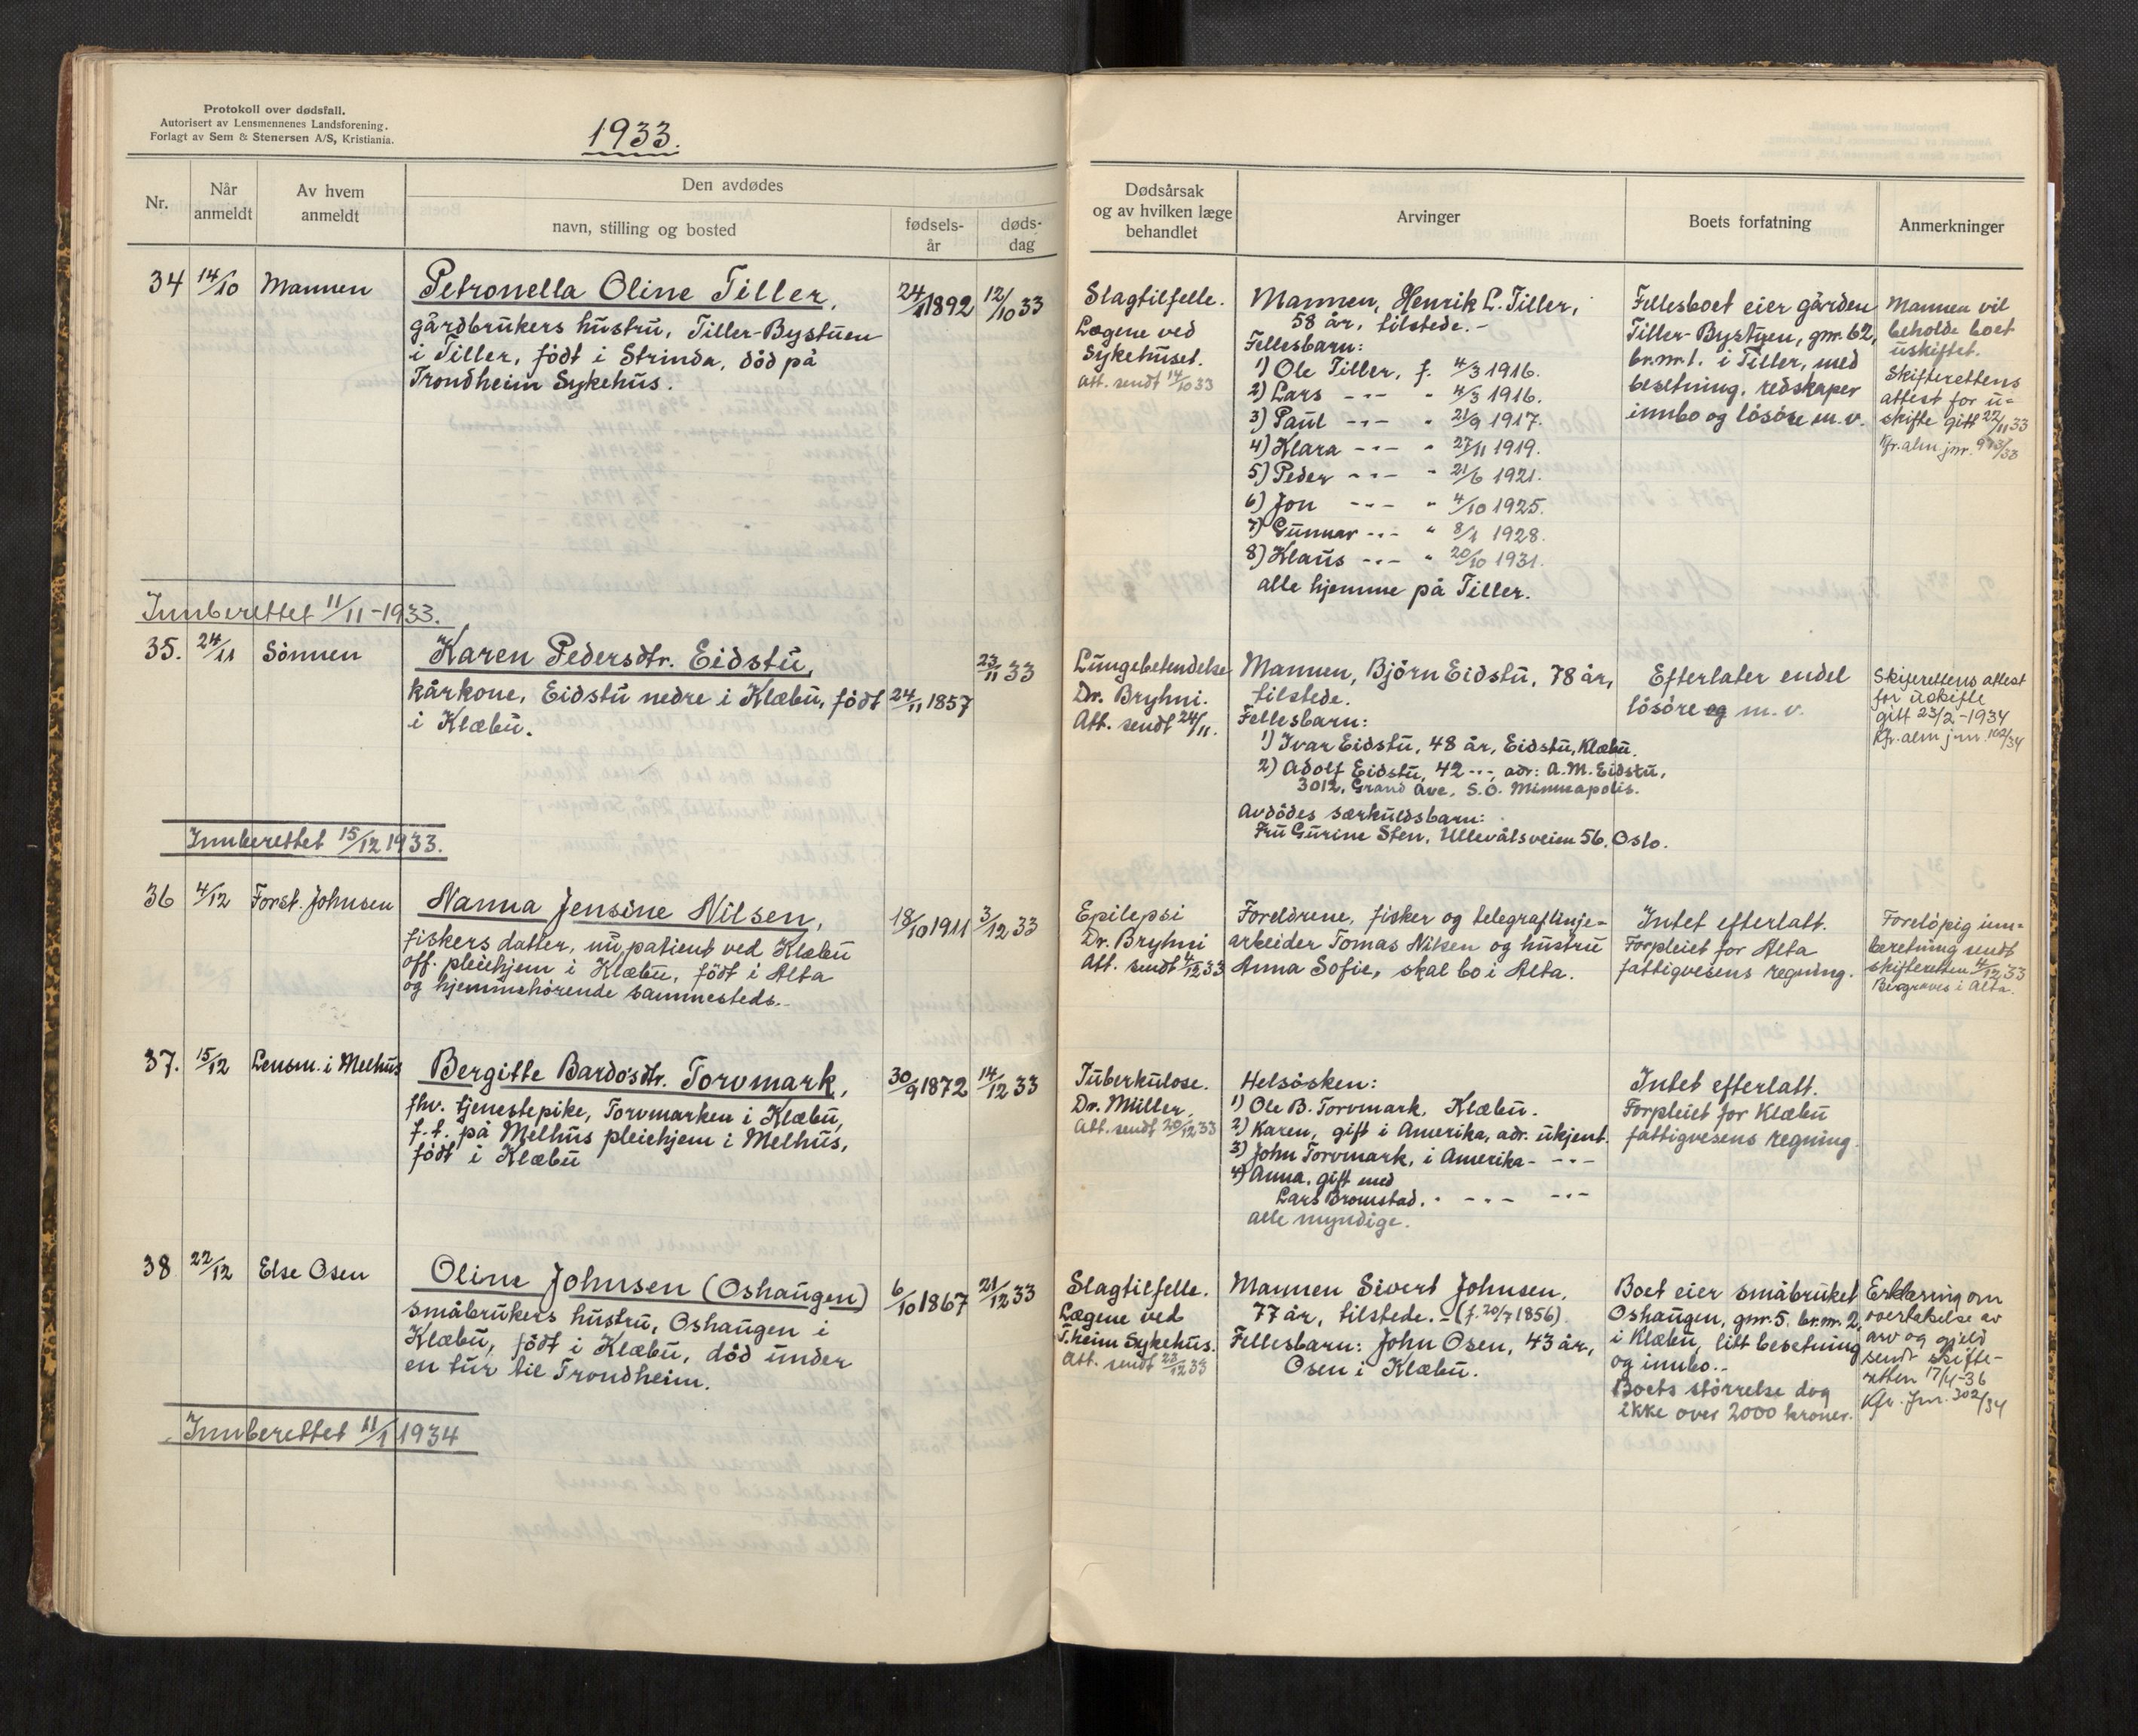 Protokoll over dødsfall.
Autorisert av Lensmennenes Landsforening.
Forlagt av Sem & Stenersen A/S, Kristiania.
1933.
Nr.
Når
anmeldt
Av hvem
anmeldt
Den avdødes
navn, stilling og bosted
fødsels-
år
døds-
dag
Dødsårsak
og av hvilken læge
behandlet
Arvinger
Boets forfatning
Anmerkninger
34
14/10
Mannen
Petronella Oline Tiller,
gårdbrukers hustru, Tiller-Bystuen
i Tiller, født i Strinda, död på
Trondheim Sykehus.
1892
12/10 33
Slagtilfelle.
Lægene ved
Sykehuset.
Att. sendt 14/10 33
Mannen, Henrik L. Tiller,
58 år, tilstede.-
Fellesbarn:
1) Ole Tiller, f. 4/3 1916.
2) Lars -"- " 4/3 1916.
3) Paul -"- " 21/9 1917.
4) Klara -"- " 27/11 1919.
5) Peder -"- " 21/6 1921.
6) Jon -"- " 4/10 1925.
7) Gunnar -"- " 1928.
8) Klaus -"- " 20/10 1931.
alle hjemme på Tiller.
Fellesboet eier gården
Tiller-Bystuen, gnr. 62,
br.nr. 1. i Tiller, med
besetning, redskaper
innbo og lösöre m.v.
Mannen vil
beholde boet
uskiftet.
Skifterettens
attest for u-
skifte gitt 22/11 33
Kfr. alm jnr.
Innberettet 11/11-1933.
35.
24/11
Sönnen
Karen Pedersdtr. Eidstu,
kårkone, Eidstu nedre i Klæbu, födt
i Klæbu.
24/11 1857
23/11 33
Lungebetendelse
Dr. Bryhni.
Att. sendt 24/11.
Mannen, Björn Eidstu, 78 år,
tilstede.
Fellesbarn:
1) Ivar Eidstu, 48 år, Eidstu, Klæbu.
2) Adolf Eidstu, 42 -"-, adr: A.M. Eidstu,
3012, Grand Ave, S.O. Minneapolis.
Avdödes særkuldsbarn:
Fru Gurine Sten, Ullevålsveien 56, Oslo.
Efterlater endel
lösöre og m.v.
Skifterettens attest
for uskifte
gitt 23/2-1934
Kfr. alm jnr. 102/34
Innberettet 15/12 1933.
36
4/12
Forst. Johnsen
Nanna Jensine Nilsen,
fiskers datter, nu patient ved Klæbu
off. pleiehjem i Klæbu, födt i Alta
og hjemmehörende sammesteds.-
18/10 1911
3/12 33
Epilepsi
Dr. Bryhni
Att. sendt 4/12 33
Foreldrene, fisker og telegraflinje-
arbeider Tomas Nilsen og hustru
Anna Sofie, skal bo i Alta.
Intet efterlatt.
Forpleiet for Alta
fattigvesens regning.
Forelöpig inn-
beretning sendt
skifteretten 4/12 33
Begraves i Alta.
37.
15/12
Lensm. i Melhus
Bergitte Bardosdtr. Torvmark,
fhv. tjenestepike, Torvmarken i Klæbu,
f.t. på Melhus pleiehjem i Melhus,
födt i Klæbu
30/9 1872
14/12 33
Tuberkulose.
Dr. Müller.
Att. sendt 20/12 33
Helsösken:
1) Ole B. Torvmark, Klæbu.
2) Karen, gift i Amerika, adr. ukjent.
3) John Torvmark, i Amerika - -"-
4) Anna, gift med
Lars Bromstad. " -"- -"-
alle myndige.
Intet efterlatt.
Forpleiet for Klæbu
fattigvesens regning.
38
22/12
Else Osen
Oline Johnsen (Oshaugen)
småbrukers hustru, Oshaugen i
Klæbu, födt i Klæbu, död under
en tur til Trondheim.
6/10 1867
21/12 33
Slagtilfelle.
Lægene ved
T.heim Sykehus.
Att. sendt 22/12 33
Mannen Sivert Johnsen,
77 år, tilstede.-(f. 20/7 1856)
Fellesbarn: John Osen, 43 år,
Osen i Klæbu.
Boet eier småbruket
Oshaugen, gnr. 5. br.nr. 2,
i Klæbu, litt besetning
og innbo.-
Boets störrelse dog
ikke over 2000 kroner.
Erklæring om
overtakelse av
arv og gjeld
sendt skifte-
retten 17/4-36
Kfr. Jnr. 302/34
Innberettet 11/1 1934